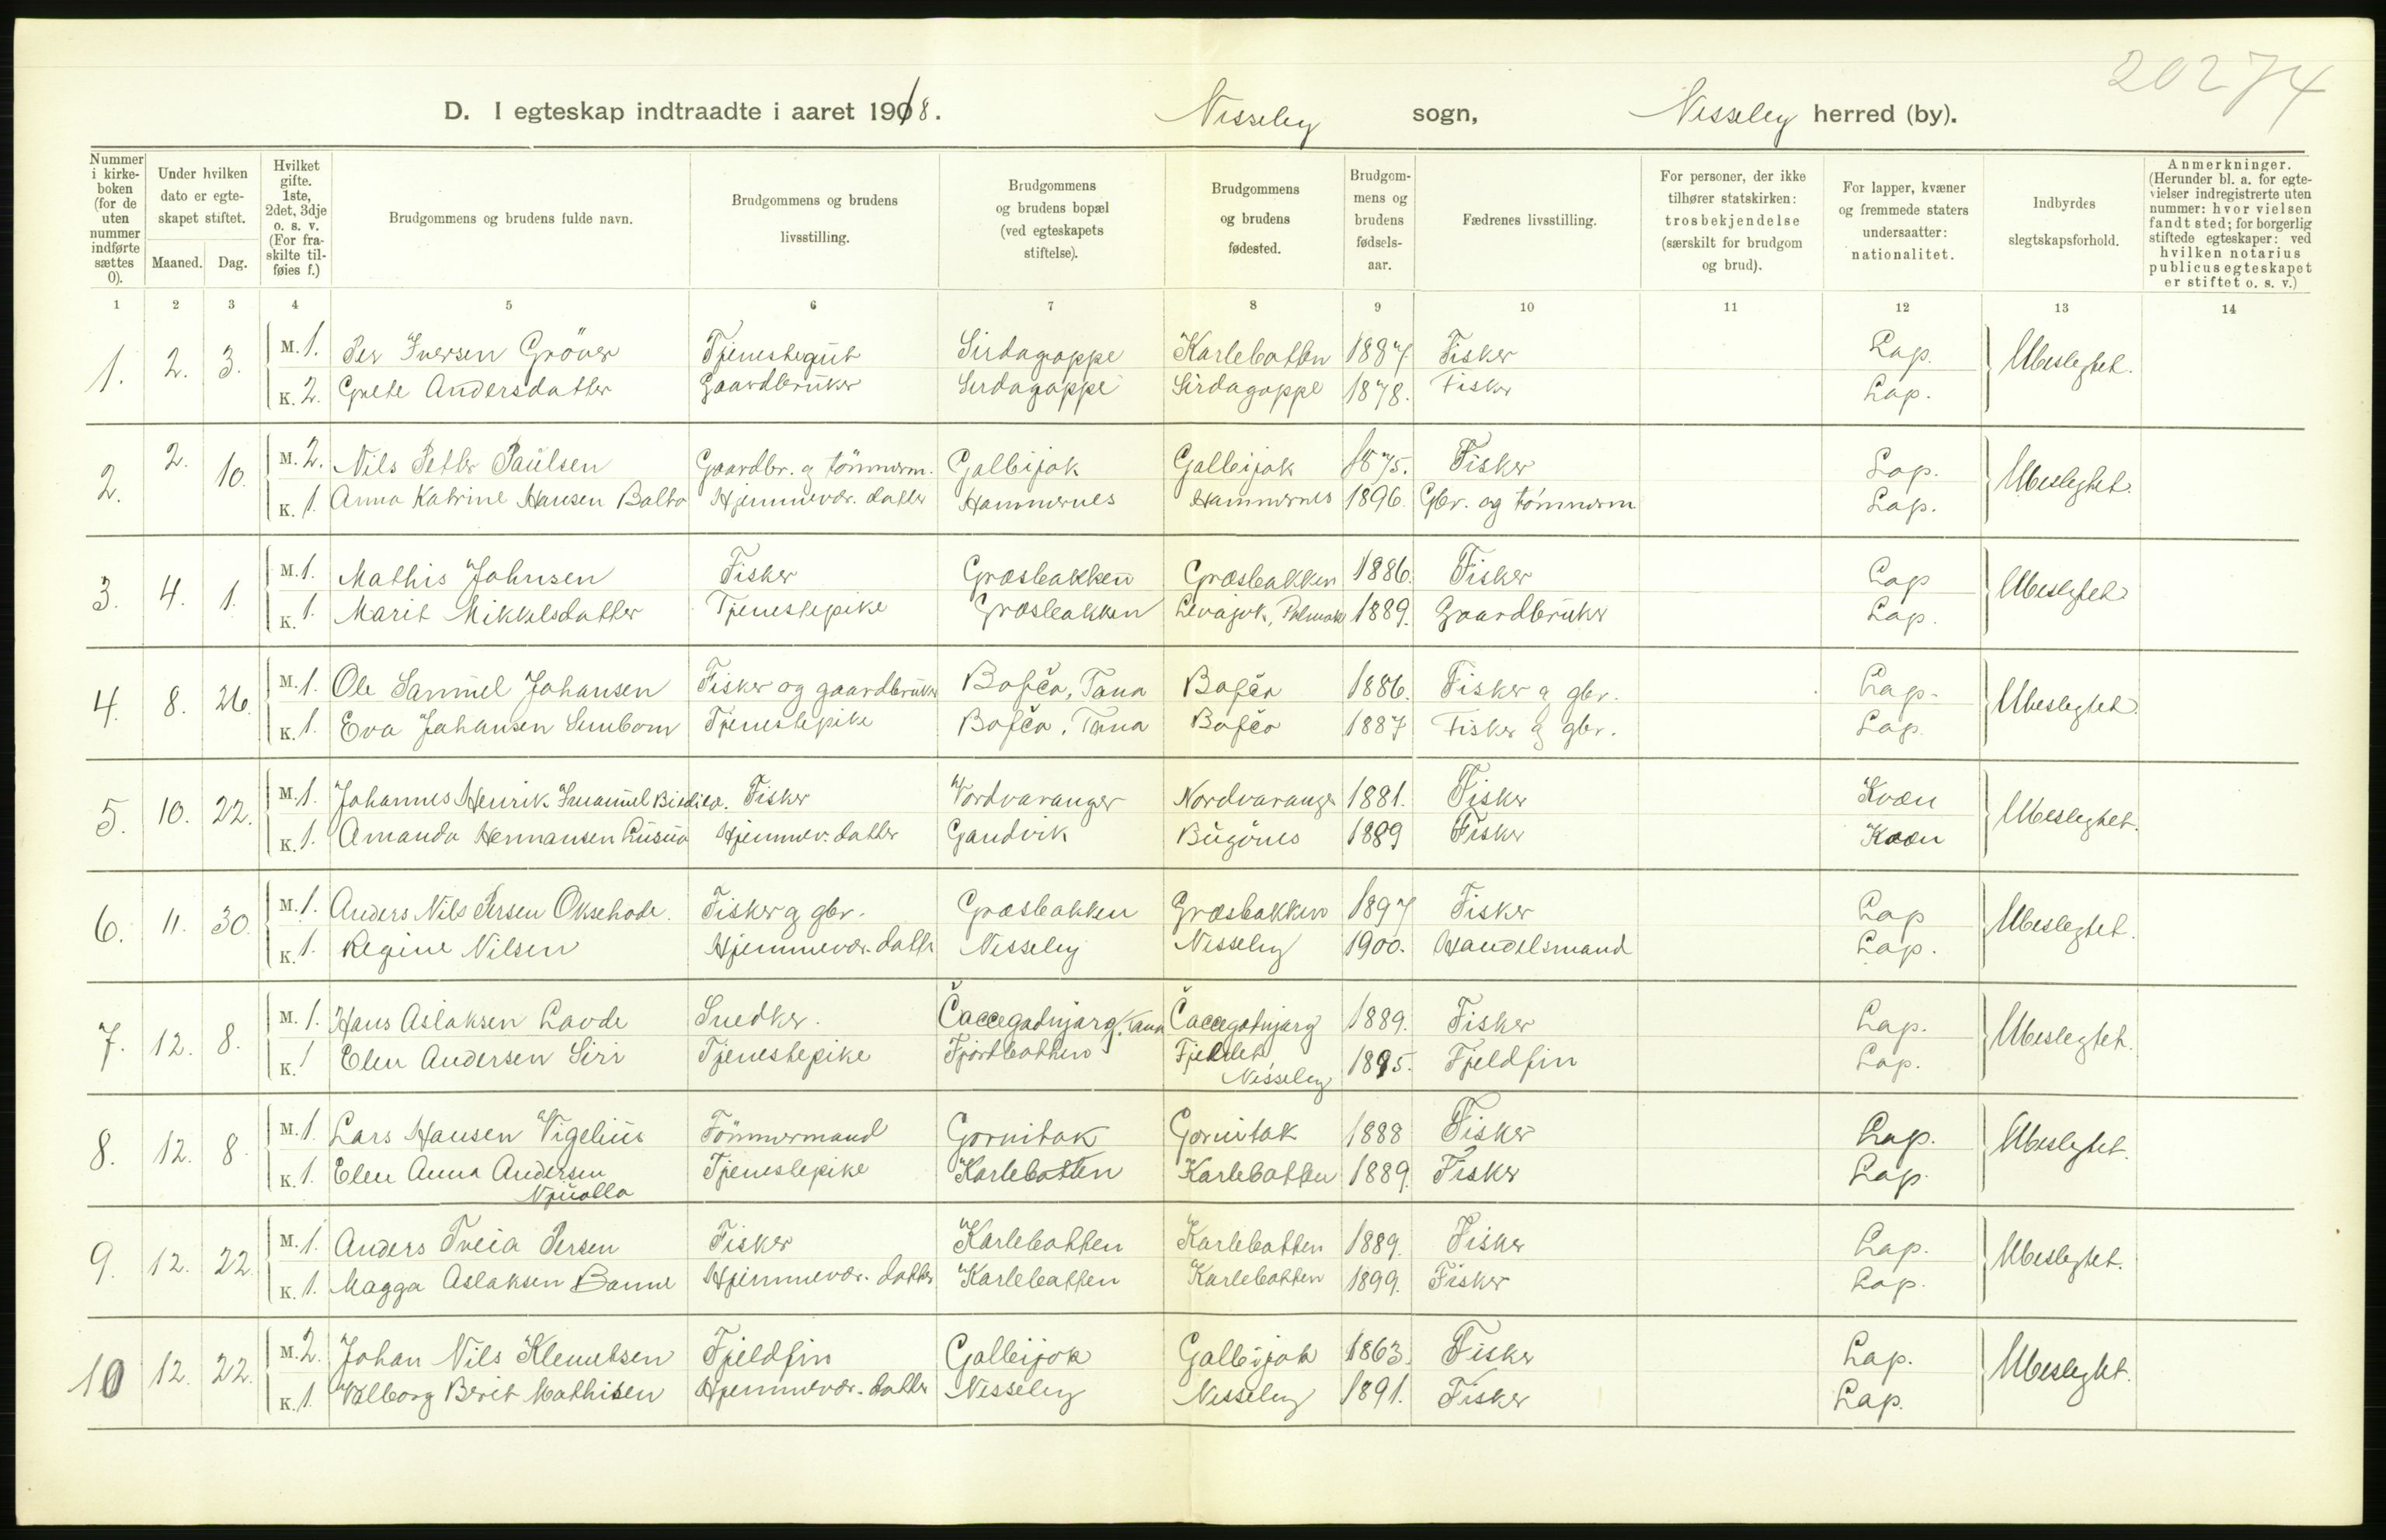 20274
D. I egteskap indtraadte i aaret 1918. Nesseby sogn, Nesseby herred (by).
Nummer i kirkeboken (for de uten nummer indførte sættes 0). Under hvilken dato er egteskapet stiftet. Maaned. Dag. Hvilket gifte. 1ste, 2det, 3dje o. s. v. (For fraskilte tilføies f.) Brudgommens og brudens fulde navn. Brudgommens og brudens livsstilling. Brudgommens og brudens bopæl (ved egteskapets stiftelse). Brudgommens og brudens fødested. Brudgommens og brudens fødselsaar. Fædrenes livsstilling. For personer, der ikke tilhører statskirken: trosbekjendelse (særskilt for brudgom og brud). For lapper, kvæner og fremmede staters undersaatter: nationalitet. Indbyrdes slegtskapsforhold. Anmerkninger. (Herunder bl. a. for egtevielser indregistrerte uten nummer: hvor vielsen fandt sted; for borgerlig stiftede egteskaper: ved hvilken notarius publicus egteskapet er stiftet o. s. v.)
1 2 3 4 5 6 7 8 9 10 11 12 13 14
1. 2. 3. M. 1. Per Iversen Gröver Tjenestegut Sirdagoppe Karlebotten 1887 Fisker Lap. Ubeslegtet.
K. 2. Grete Andersdatter Gaardbruker Sirdagoppe Sirdagoppe 1878. Fisker Lap.
2. 2. 10. M. 2. Nils Petter Paulsen Gaardbr. og tömmerm. Galbijok Galbijok 1875. Fisker Lap. Ubeslegtet.
K. 1. Anna Katrine Hansen Balto Hjemmevær. datter Hammernes Hammernes 1896. Gbr. og tömmerm Lap.
3. 4. 1. M. 1. Mathis Johnsen Fisker Græsbakken Græsbakken 1886. Fisker Lap Ubeslegtet
K. 1. Marit Mikkelsdatter Tjenestepike Græsbakken Levajok, Polmak 1889. Gaardbruker Lap.
4. 8. 26. M. 1. Ole Samuel Johansen Fisker og gaardbruker Bofčo, Tana Bofčo 1886. Fisker og gbr. Lap. Ubeslegtet.
K. 1. Eva Johansen Sembom Tjenestepike Bofčo, Tana Bofčo 1887 Fisker og gbr. Lap
5. 10. 22. M. 1. Johannes Henrik Imanuel Fisker Nordvaranger Nordvaranger 1881. Fisker Kvæn Ubeslegtet.
K. 1. Amanda Hermansen Hjemmev. datter Gandvik Bugönes 1889 Fisker Kvæn
6. 11. 30. M. 1. Anders Nils Persen Oksehode. Fisker og gbr. Græsbakken Græsbakken 1897 Fisker Lap Ubeslegtet.
K. 1. Regine Nilsen Hjemmevær. datter Nesseby Nesseby 1900. Handelsmand Lap.
7. 12. 8. M. 1. Hans Aslaksen Lavde Snedker. Čaccegadnjarg, Tana Čaccegadnjarg 1889. Fisker Lap. Ubeslegtet.
K. 1 Elen Andersen Siri Tjenestepike Fjordbotten Fjeldet 1895. Fjeldfin Lap.
Nesseby
8. 12. 8. M. 1. Lars Hansen Vigelius Tömmermand Gornitak Gornitak 1888 Fisker Lap. Ubeslegtet.
K. 1. Elen Anna Andersen Tjenestepike Karlebotten Karlebotten 1889. Fisker Lap
Njuolla
9. 12. 22. M. 1. Anders Treia Persen Fisker Karlebotten Karlebotten 1889. Fisker Lap. Ubeslegtet.
K. 1. Magga Aslaksen Banne Hjemmevær. datter Karlebotten Karlebotten 1899. Fisker Lap.
10 12. 22. M. 2. Johan Nils Klemetsen Fjeldfin Galbijok Galbijok 1863. Fisker Lap. Ubeslegtet.
K. 1. Valborg Berit Mathisen Hjemmevær. datter Nesseby Nesseby 1891. Fisker Lap.